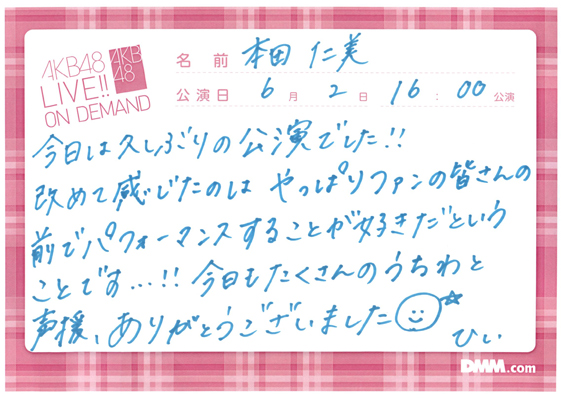 AKB48
LIVE!!
ON DEMAND
AKB
48
名前 本田 仁美
公演日 6月 2日 16:00公演
今日は久しぶりの公演でした!!
改めて感じたのは やっぱりファンの皆さんの
前でパフォーマンスすることが好きだという
ことです…!! 今日もたくさんのうちわと
声援、ありがとうございました☺☆
ひぃ
DMM.com